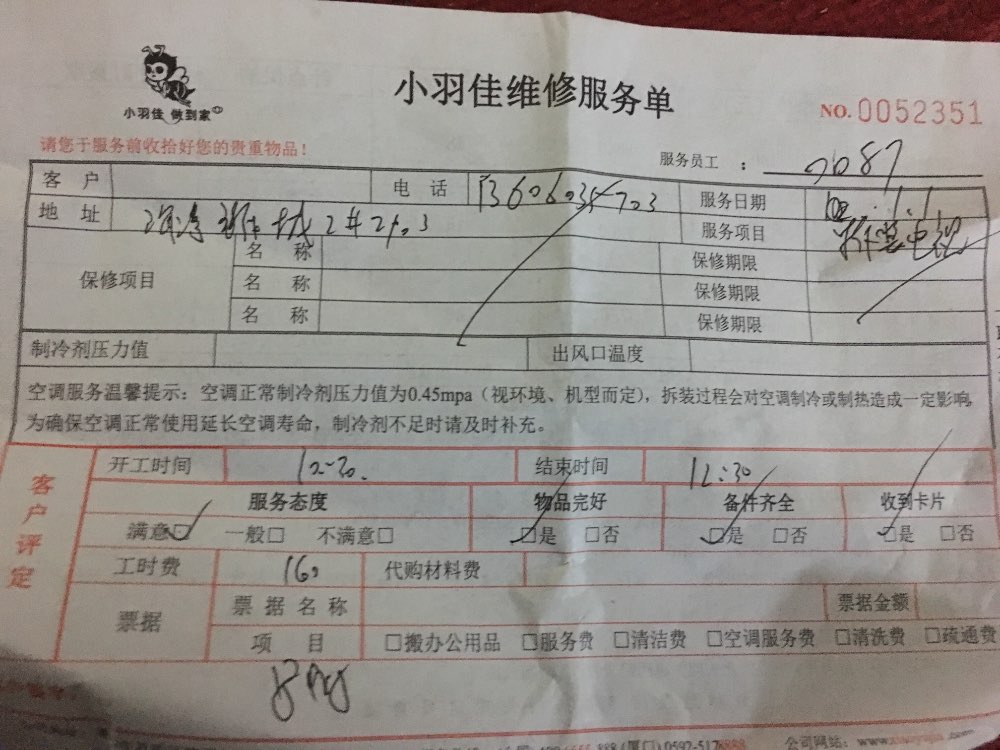 小羽佳维修服务单
小羽佳 做到家
NO. 0052351
请您于服务前收拾好您的贵重物品！
服务员工 : 9087
客 户 电 话 服务日期
地 址 服务项目 拆装电视
保修项目 名 称 保修期限
名 称 保修期限
名 称 保修期限
制冷剂压力值 出风口温度
空调服务温馨提示：空调正常制冷剂压力值为0.45mpa（视环境、机型而定），拆装过程会对空调制冷或制热造成一定影响，
为确保空调正常使用延长空调寿命，制冷剂不足时请及时补充。
客户评定
开工时间 结束时间 12:30
服务态度 物品完好 备件齐全 收到卡片
满意☑ 一般□ 不满意□ ☑是 □否 ☑是 □否 ☑是 □否
工时费 160 代购材料费
票据 票据名称 票据金额
项 目 □搬办公用品 □服务费 □清洁费 □空调服务费 □清洗费 □疏通费
公司网站：